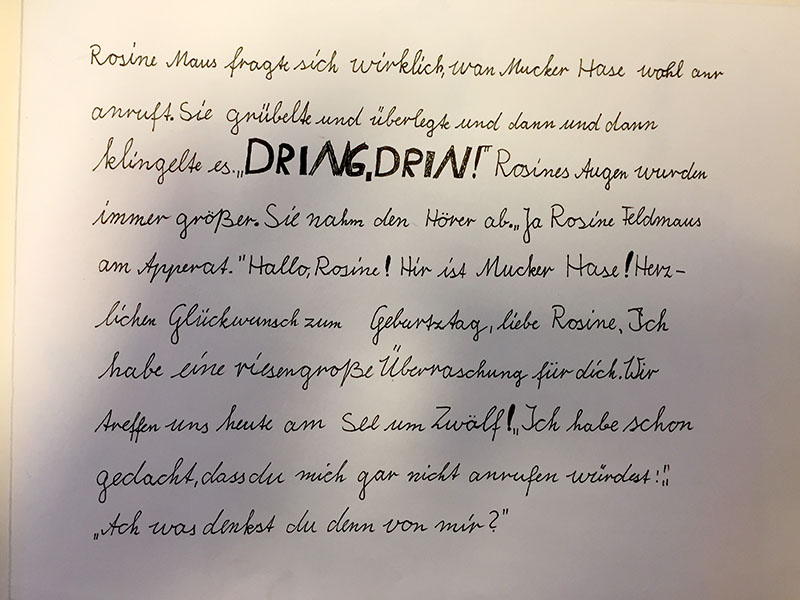 Rosine Maus fragte sich wirklich, wan Mucker Hase wohl anr
anruft. Sie grübelte und überlegte und dann und dann
klingelte es. „DRING, DRIN!" Rosines Augen wurden
immer größer. Sie nahm den Hörer ab. „Ja Rosine Feldmaus
am Apperat." "Hallo, Rosine! Hir ist Mucker Hase! Herz-
lichen Glückwunsch zum Geburtztag, liebe Rosine, Ich
habe eine riesengroße Überraschung für dich. Wir
treffen uns heute am See um Zwölf! „Ich habe schon
gedacht, dass du mich gar nicht anrufen würdest!"
„Ach was denkst du denn von mir?"